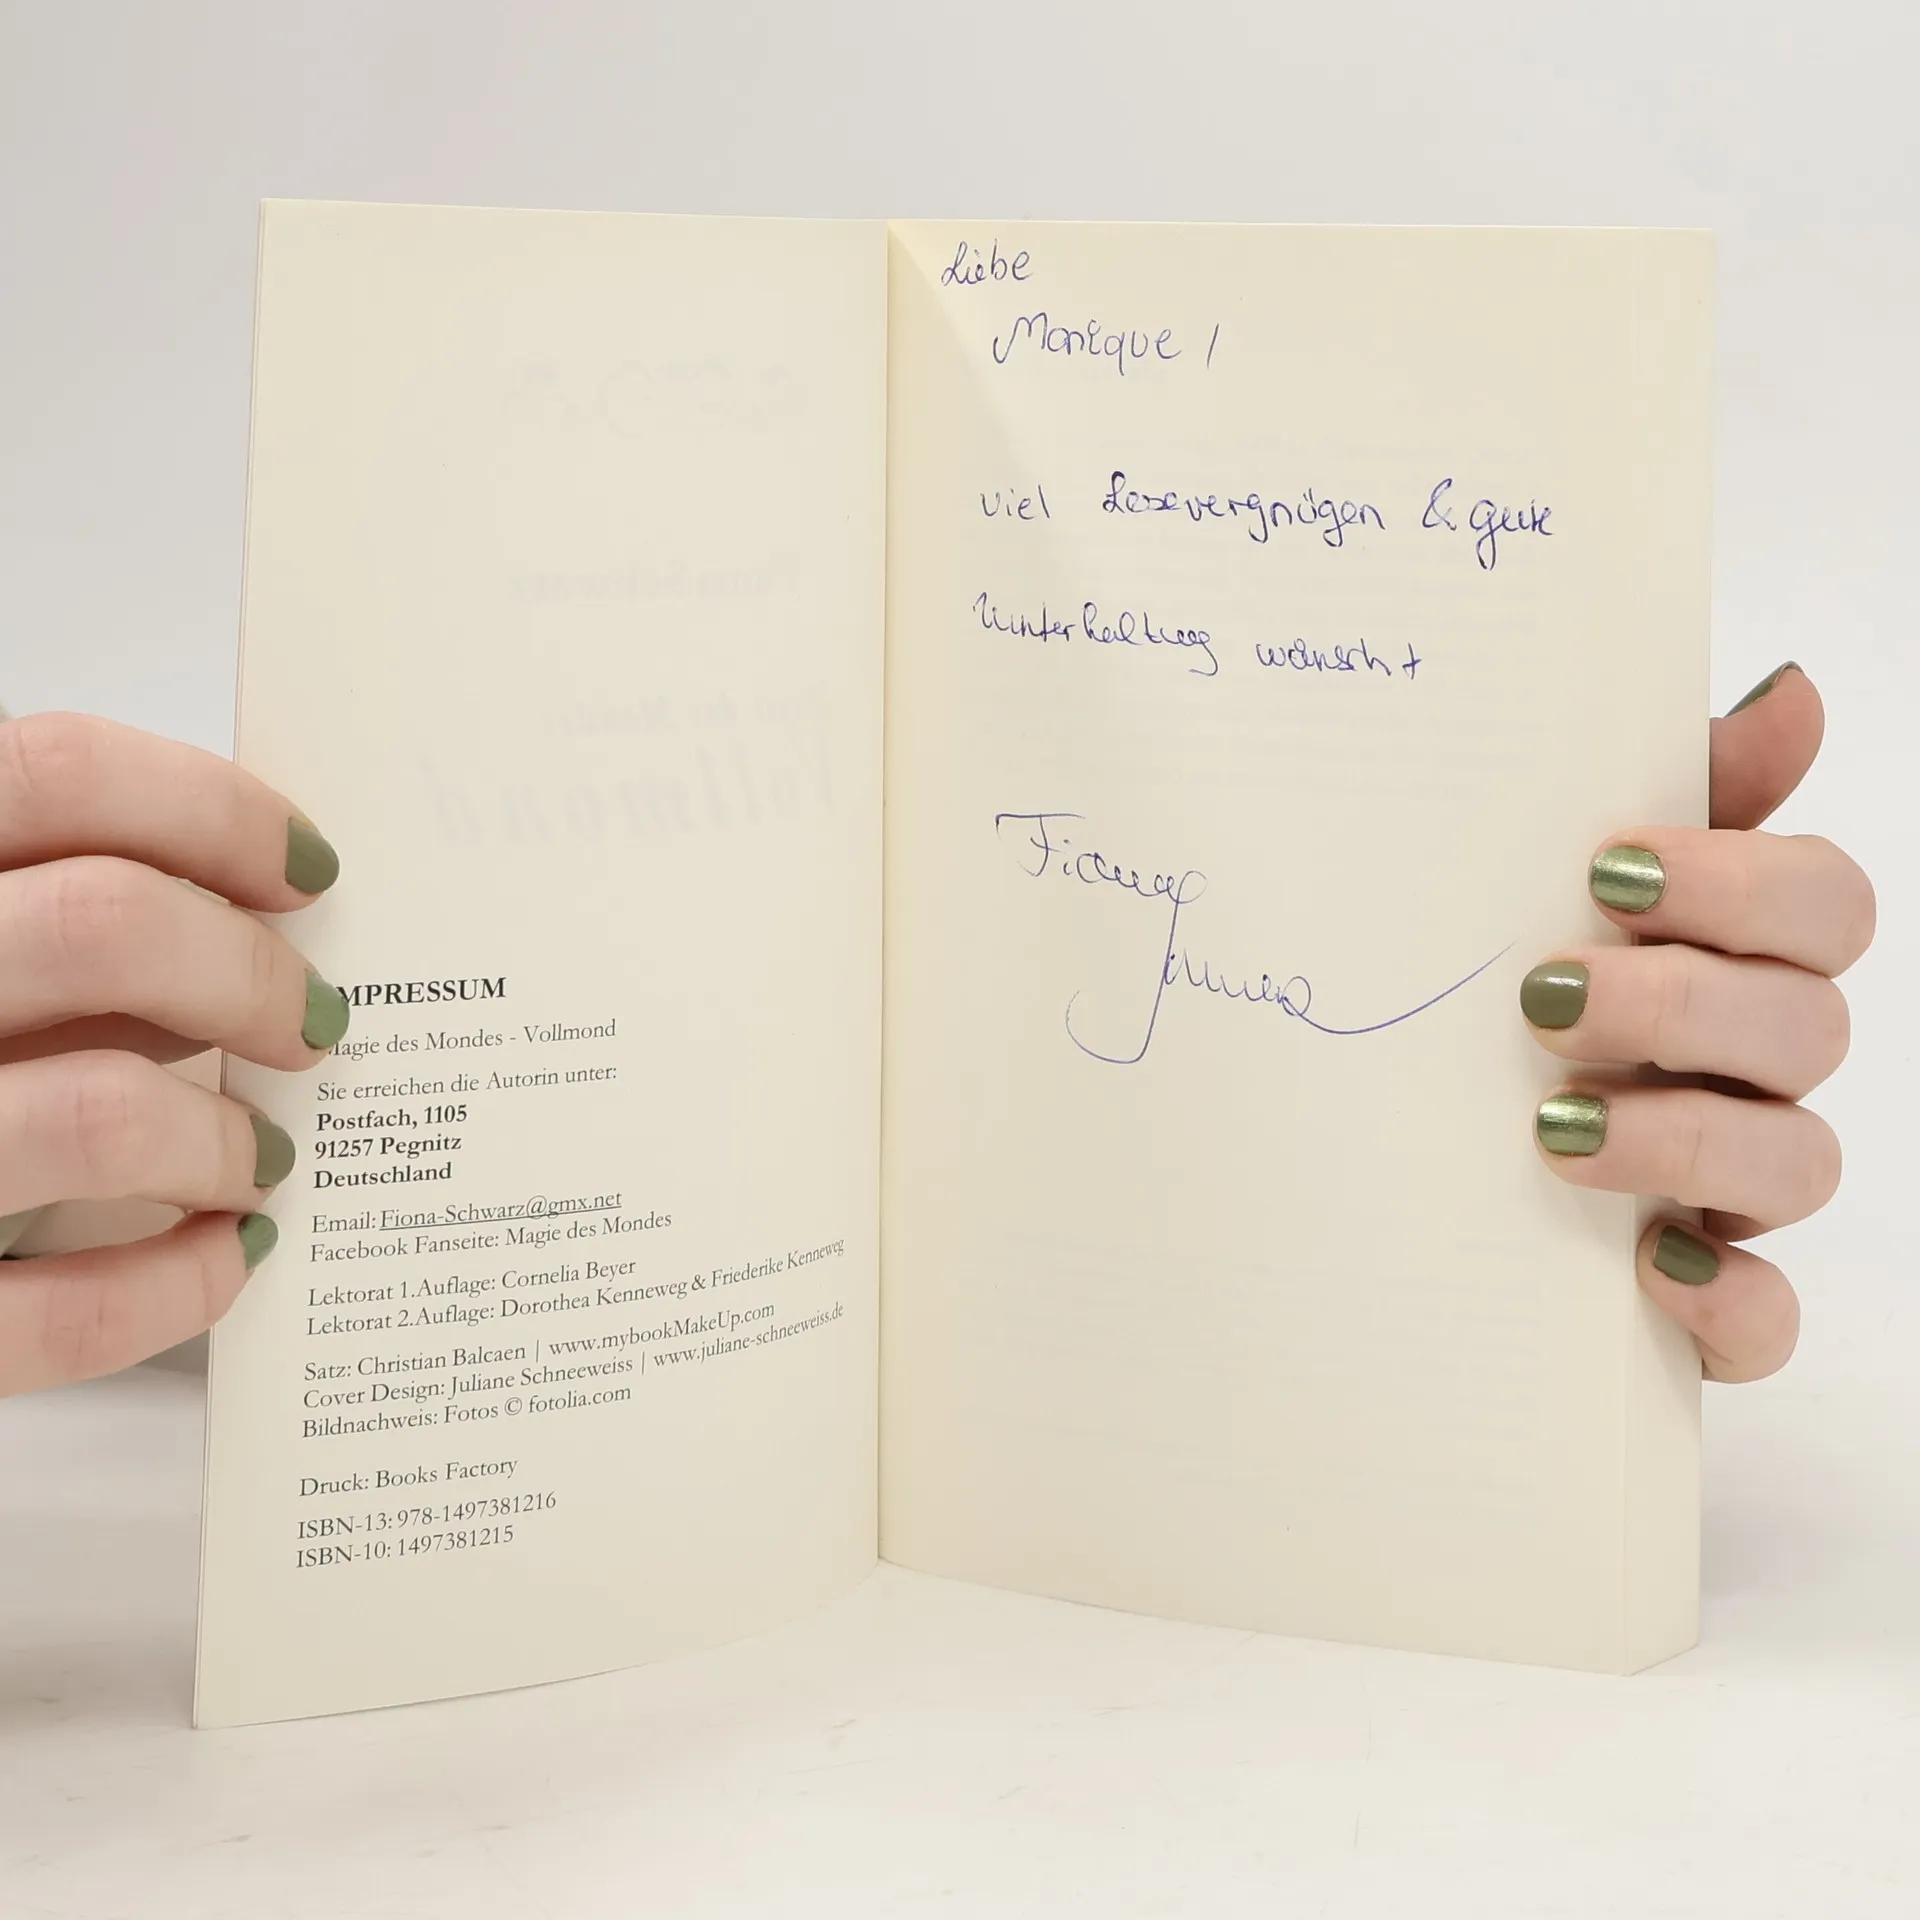 MPRESSUM
Magie des Mondes - Vollmond
Sie erreichen die Autorin unter:
Postfach, 1105
91257 Pegnitz
Deutschland
Email: Fiona-Schwarz@gmx.net
Facebook Fanseite: Magie des Mondes
Lektorat 1.Auflage: Cornelia Beyer
Lektorat 2.Auflage: Dorothea Kenneweg & Friederike Kenneweg
Satz: Christian Balcaen | www.mybookMakeUp.com
Cover Design: Juliane Schneeweiss | www.juliane-schneeweiss.de
Bildnachweis: Fotos © fotolia.com
Druck: Books Factory
ISBN-13: 978-1497381216
ISBN-10: 1497381215
Liebe
Monique !
viel Lesevergnügen & gute
Unterhaltung wünscht
Fiona